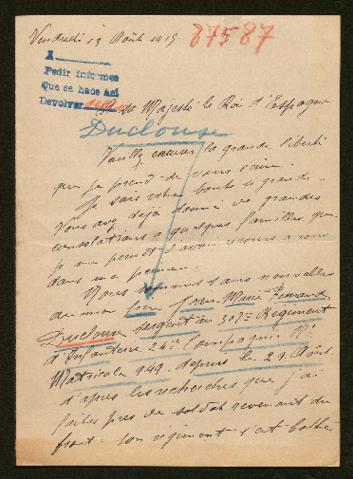 Vendredi 13 Août 1915
87587
A
Pedir informes
Que se hace asi
Devolver
sa Majesté le Roi d'Espagne
Duclouse
Veuillez excuser la grande liberté
que je prend de vous écrire.
Je sais votre bonté si grande
Vous avez déjà donné de grandes
consolations a quelques familles que
je me permet d'avoir recours a vous
dans ma peine.
Nous sommes sans nouvelles
de mon Jean Marie Fernand
Duclouse sergent au 307e Régiment
d'Infanterie 24e Compagnie No
Matricule 949 depuis le 29 Août
d'après les recherches que j'ai
faites près de soldat revenant du
front. son régiment s'est battu